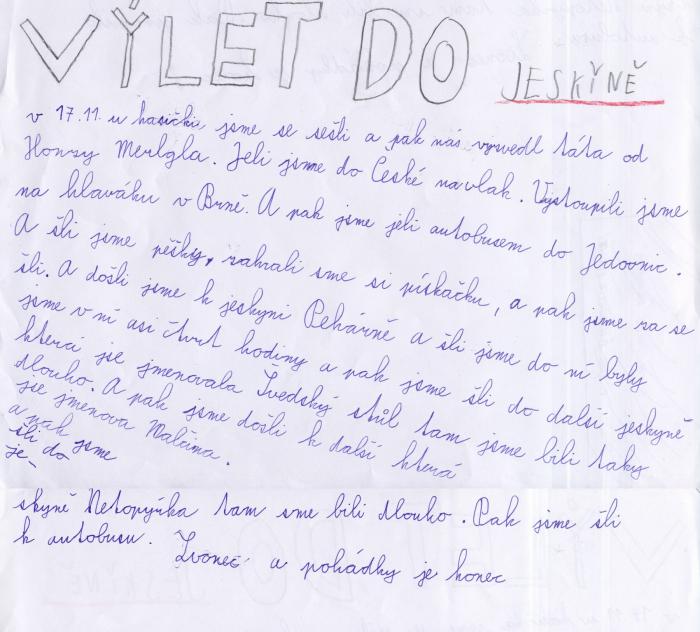 VÝLET DO JESKYNĚ
v 17.11. u hasički jsme se sešli a pak nás vyzvedl táta od
Honzy Merlgla. Jeli jsme do České na vlak. Vystoupili jsme
na hlaváku v Brně. A pak jsme jeli autobusem do Jedovnic.
A šli jsme pěšky, zahráli sme si pískačku, a pak jsme za se
šli. A došli jsme k jeskyni Pekárně a šli jsme do ní byly
jsme v ní asi čtvrt hodiny a pak jsme šli do další jeskyně
která jse jmenovala Švédský stůl tam jsme bili taky
dlouho. A pak jsme došli k další která
jse jmenova Malčina.
a pak jsme
šli do
je-
skyně Netopýrka tam sme bili dlouho. Pak jsme šli
k autobusu.
Zvoneč a pohádky je konec